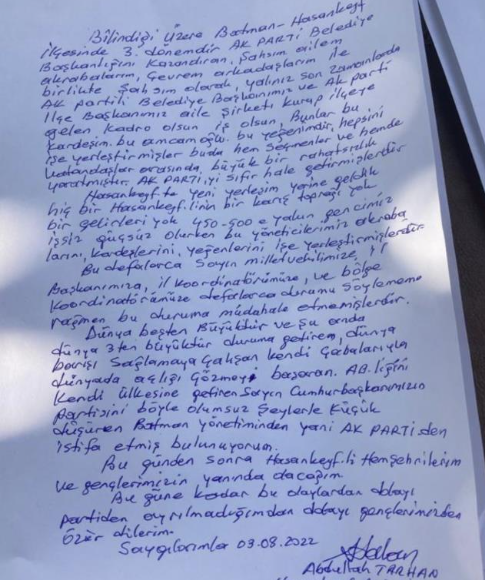 Bilindiği üzere Batman-Hasankeyf
ilçesinde 3. dönemdir AK PARTİ Belediye
Başkanlığını Kazandıran, Şahsım ailem
akrabalarım, Çevrem arkadaşlarım ile
birlikte Şahsım olarak, yalınız son zamanlarda
AK partili Belediye Başkanımız ve Ak parti
İlçe Başkanımız aile şirketi kurup ilçeye
gelen Kadro olsun iş olsun, Bunlar bu
Kardeşim, bu amcam oğlu, bu yeğenimdir, hepsini
işe yerleştirmişler buda hem Seçmenler ve hemde
Vatandaşlar arasında büyük bir rahatsızlık
yaratmıştır, AK PARTİ,yi Sıfır hale getirmişlerdir
Hasankeyf.te yeni yerleşim yerine geldik
hiç bir Hasankeyf.linin bir karış toprağı yok
bir gelirleri yok 450-500 e yakın gencimiz
işsiz güçsüz olurken bu yöneticilerimiz akraba
larını, kardeşlerini, yeğenlerini işe yerleştirmişlerdir
Bu defalarca Sayın milletvekilimize, İl
Başkanımıza, il koordinatörümüze, ve bölge
Koordinatörümüze defalarca durumu Söylememe
rağmen bu duruma müdahale etmemişlerdir.
Dünya beşten Büyüktür ve şu anda
dünya 3ten büyüktür duruma getiren, dünya
barışı Sağlamaya Çalışan kendi Çabalarıyla
dünyada açlığı Çözmeyi başaran. AB.liğini
Kendi ülkesine getiren Sayın Cumhurbaşkanımızın
partisini böyle olumsuz Şeylerle Küçük
düşüren Batman yönetiminden yani AK PARTİ den
istifa etmiş bulunuyorum.
Bu günden sonra Hasankeyf.li Hemşehrilerim
ve gençlerimizin yanında olacağım
Bu güne kadar bu olaylardan dolayı
partiden ayrılmadığımdan dolayı gençlerimizden
özür dilerim.
Saygılarımla 03.08.2022
Abdullah TARHAN